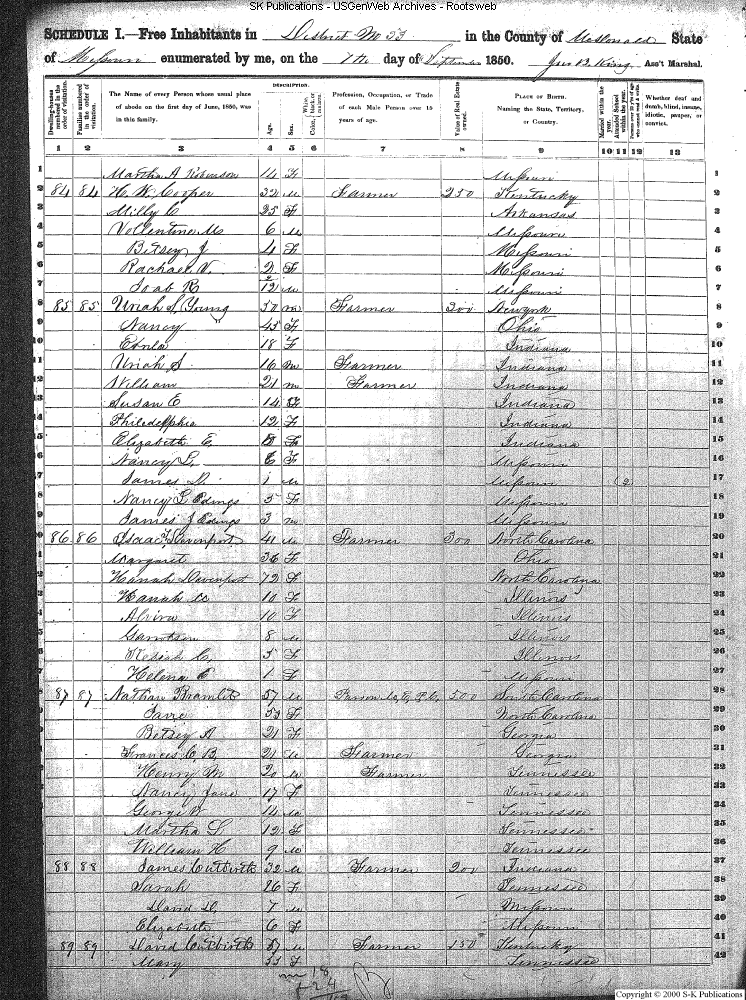 SK Publications - USGenWeb Archives - Rootsweb
SCHEDULE I.—Free Inhabitants in District No 53 in the County of McDonald State
of Missouri enumerated by me, on the 7th day of September 1850. Jno B. King Ass't Marshal.
Dwelling-houses numbered in the order of visitation.
Families numbered in the order of visitation.
The Name of every Person whose usual place of abode on the first day of June, 1850, was in this family.
DESCRIPTION.
Age.
Sex.
White, black, or mulatto.
Color,
Profession, Occupation, or Trade of each Male Person over 15 years of age.
Value of Real Estate owned.
PLACE OF BIRTH.
Naming the State, Territory, or Country.
Married within the year.
Attended School within the year.
Whether deaf and dumb, blind, insane, idiotic, pauper, or convict.
1 2 3 4 5 6 7 8 9 10 11 12 13
1 Martha A Robinson 14 F Missouri 1
2 84 84 H. W. Cooper 32 M Farmer 250 Kentucky 2
3 Milly C 25 F Arkansas 3
4 Vollentine M 6 M Missouri 4
5 Betsey J 4 F Missouri 5
6 Rachael V. 2 F Missouri 6
7 Joab R 2/12 M Missouri 7
8 85 85 Uriah S. Young 50 M Farmer 300 New York 8
9 Nancy " 45 F Ohio 9
10 18 F Indiana 10
11 Uriah S. 16 M Farmer Indiana 11
12 William 21 M Farmer Indiana 12
13 Susan E 14 F Indiana 13
14 Philadelphia 12 F Indiana 14
15 Elizabeth E 8 F Indiana 15
16 Nancy L. 6 F Missouri 16
17 James D. 1 M Missouri 17
18 Nancy L Edings 5 F Missouri 18
19 James J Edings 3 M Missouri 19
20 86 86 Isaac Davenport 41 M Farmer 300 North Carolina 20
21 Margaret 36 F Ohio 21
22 Hanah Davenport 72 F North Carolina 22
23 Hanah 10 F Illinois 23
24 Alvira 10 F Illinois 24
25 8 M Illinois 25
26 C. 5 F Illinois 26
27 Helena E 1 F Missouri 27
28 87 87 Nathan Bramlet 57 M 500 South Carolina 28
29 53 F North Carolina 29
30 Betsey A 21 F Georgia 30
31 Frances C B. 21 M Farmer Georgia 31
32 Henry M 20 M Farmer Tennessee 32
33 Nancy Jane 17 F Tennessee 33
34 George W 14 M Tennessee 34
35 Martha S. 12 F Tennessee 35
36 William H 9 M Tennessee 36
37 88 88 James Cutbirth 32 M Farmer 200 Indiana 37
38 Sarah 26 F Tennessee 38
39 David D. 7 M Missouri 39
40 Elizabeth 6 F Missouri 40
41 89 89 David Cutbirth 57 M Farmer 150 Kentucky 41
42 Mary 55 F Tennessee 42
m 18
f 24
Copyright © 2000 S-K Publications